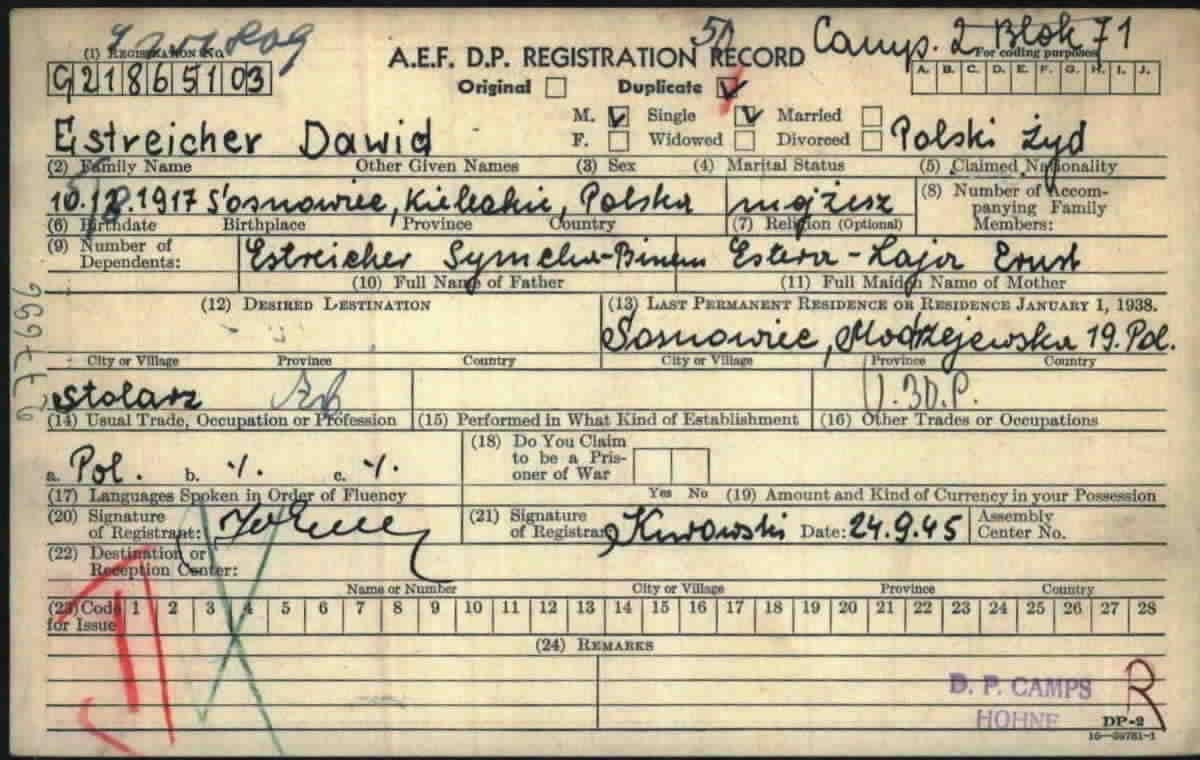 Camp. 2 Blok 71
(1) Registration No.
A.E.F. D.P. REGISTRATION RECORD
For coding purposes
G21865103
Original Duplicate
A. B. C. D. E. F. G. H. I. J.
M. Single Married
F. Widowed Divorced
Estreicher Dawid Polski Żyd
(2) Family Name Other Given Names (3) Sex (4) Marital Status (5) Claimed Nationality
1917 Sosnowiec, Kieleckie, Polska mojżesz (8) Number of Accompanying Family Members:
(6) Birthdate Birthplace Province Country (7) Religion (Optional)
(9) Number of Dependents: Estreicher Symcha-Binem Estera-Łaja Ernst
(10) Full Name of Father (11) Full Maiden Name of Mother
(12) Desired Destination (13) Last Permanent Residence or Residence January 1, 1938.
Sosnowiec, Modrzejewska 19. Pol.
City or Village Province Country City or Village Province Country
stolarz
(14) Usual Trade, Occupation or Profession (15) Performed in What Kind of Establishment (16) Other Trades or Occupations
a. Pol. b. -/. c. -/.
(18) Do You Claim to be a Prisoner of War
(17) Languages Spoken in Order of Fluency Yes No (19) Amount and Kind of Currency in your Possession
(20) Signature of Registrant: (21) Signature of Registrar: Kurowski Date: 24.9.45 Assembly Center No.
(22) Destination or Reception Center:
Name or Number City or Village Province Country
(23) Code for Issue 1 2 3 4 5 6 7 8 9 10 11 12 13 14 15 16 17 18 19 20 21 22 23 24 25 26 27 28
(24) Remarks
D. P. CAMPS
HOHNE
R
DP-2
16—39781-1